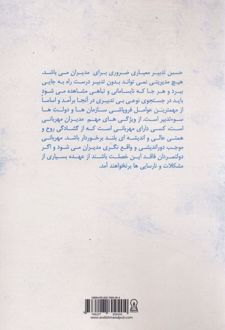 حسن تدبیر معیاری ضروری برای مدیران می باشد.
هیچ مدیریتی نمی تواند بدون تدبیر درست راه به جایی
ببرد و هر جا که نابسامانی و تباهی مشاهده می شود
باید در جستجوی نوعی بی تدبیری در آنجا برآمد و اساساً
از مهمترین عوامل فروپاشی سازمان ها و دولت ها
سوءتدبیر است. از ویژگی های مهم مدیران مهربانی
است؛ کسی دارای مهربانی است که از گشادگی روح و
همتی عالی و اندیشه ای بلند برخوردار باشد. مهربانی
موجب دوراندیشی و واقع نگری مدیران می شود و اگر
دولتمردان فاقد این خصلت باشند از عهده بسیاری از
مشکلات و نارسایی ها برنخواهند آمد.